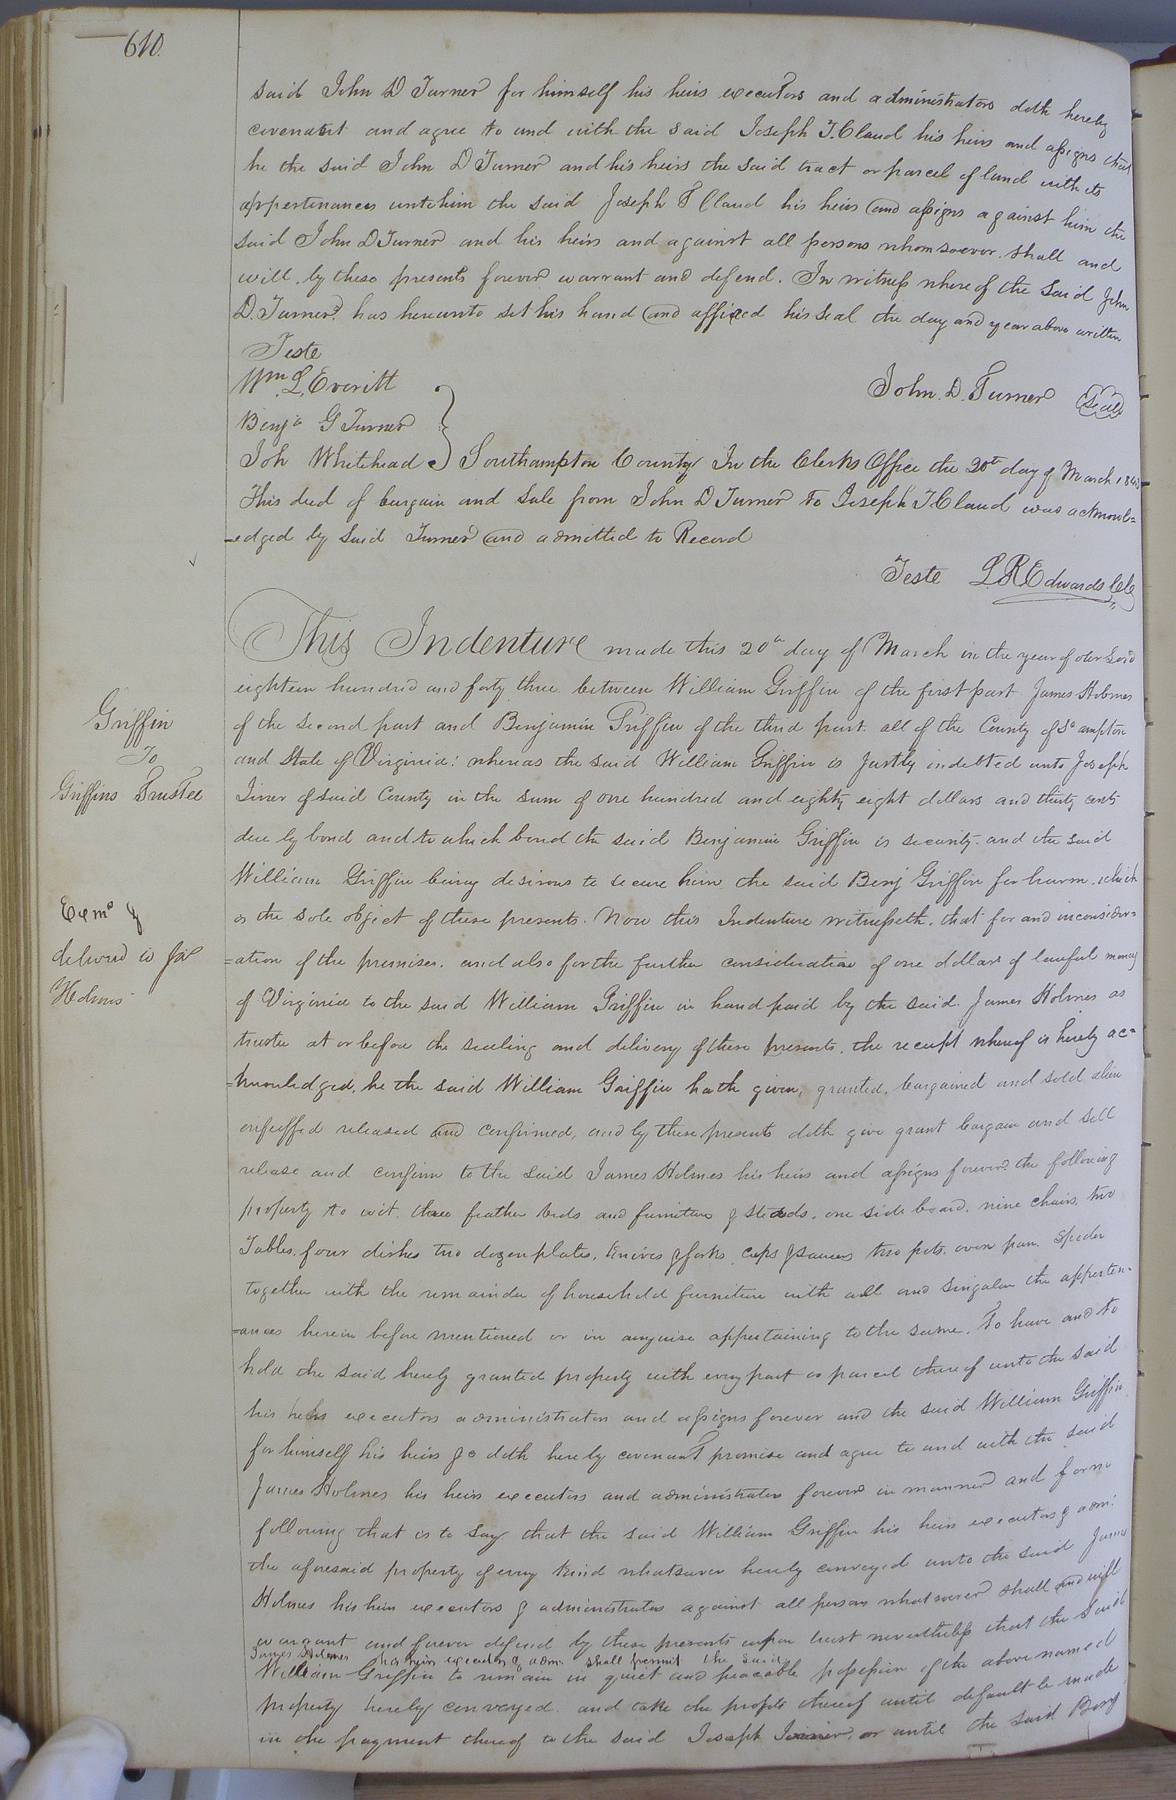 610
said John D Turner for himself his heirs executors and administrators doth hereby
covenant and agree to and with the said Joseph T. Claud his heirs and assigns that
he the said John D Turner and his heirs the said tract or parcel of land with its
appertenances unto him the said Joseph T Claud his heirs and assigns against him the
said John D Turner and his heirs and against all persons whomsoever. shall and
will, by these presents forever warrant and defend. In witness whereof the said John
D. Turner has hereunto set his hand and affixed his seal the day and year above written
Teste
Wm. L. Everitt
John. D. Turner Seal
Benja G Turner
Joh Whitehead } Southampton County In the Clerks Office the 20th day of March 1843
This deed of bargain and sale from John D Turner to Joseph T. Claud was acknowl=
=edged by said Turner and admitted to Record
Teste L. R. Edwards
This Indenture made this 20th day of March in the year of our Lord
eighteen hundred and forty three between William Griffin of the first part James Holmes
Griffin
To
Griffins Trustee
of the second part and Benjamin Griffin of the third part. all of the County of So ampton
and State of Virginia: whereas the said William Griffin is justly indebted unto Joseph
Joiner of said County in the sum of one hundred and eighty eight dollars and thirty cents
due by bond and to which bond the said Benjamin Griffin is security. and the said
William Griffin being desirous to secure him the said Benj Griffin for harm. which
Exmd &
delivered to Jas
Holmes
is the sole object of these presents. Now this Indenture witnesseth. that for and inconsider=
=ation of the premises. and also for the further consideration of one dollar of lawful money
of Virginia to the said William Griffin in hand paid by the said. James Holmes as
trustee at or before the sealing and delivery of these presents. the receipt whereof is hereby ac=
=knowledged, he the said William Griffin hath given, granted, bargained and sold alien
enfeoffed released and confirmed, and by these presents doth give grant bargain and sell
release and confirm to the said James Holmes his heirs and assigns forever the following
property to wit. three feather beds and furniture & steads. one side board. nine chairs. two
Tables. four dishes two dozen plates, knives & forks. cups & saucers two pots. oven pan. spider
together with the remainder of household furniture with all and singular the apperten-
=ances herein before mentioned or in anywise appertaining to the same. To have and to
hold the said hereby granted property with every part or parcel thereof unto the said
his heirs executors administrators and assigns forever and the said William Griffin
for himself his heirs &c doth hereby covenant promise and agree to and with the said
James Holmes his heirs executors and administrators forever in manner and form
following that is to say that the said William Griffin his heirs executors & adm:
the aforesaid property of every kind whatsoever hereby conveyed unto the said James
Holmes his heirs executors & administrators against all persons whatsoever shall and will
warrant and forever defend by these presents upon trust nevertheless that the said
James Holmes his heirs executors & adm. shall permit the said
William Griffin to remain in quiet and peacable possession of the above named
property hereby conveyed. and take the profits thereof until default be made
in the payment thereof to the said Joseph Joiner, or until the said Benj